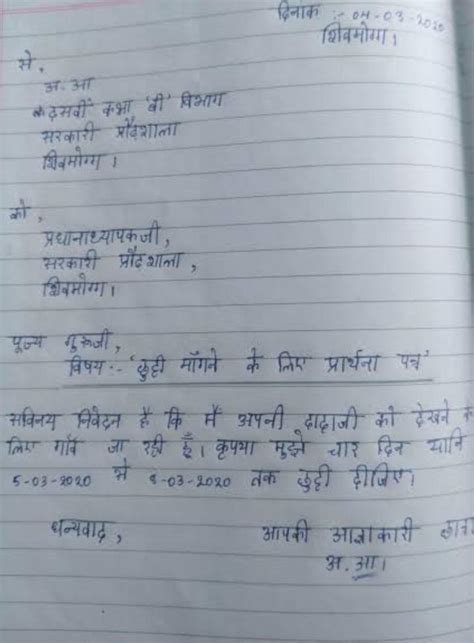 दिनाक :- 04-03-2020
शिवमोग्गा।
से,
अ. आ
दसवीं कक्षा 'बी' विभाग
सरकारी प्रौढशाला
शिवमोग्ग।
को,
प्रधानाध्यापकजी,
सरकारी प्रौढशाला,
शिवमोग्ग।
पूज्य गुरुजी,
विषय :- 'छुट्टी माँगने के लिए प्रार्थना पत्र'
सविनय निवेदन है कि मैं अपनी दादाजी को देखने के
लिए गाँव जा रही हूँ। कृपया मुझे चार दिन यानि
5-03-2020 से 8-03-2020 तक छुट्टी दीजिए।
धन्यवाद, आपकी आज्ञाकारी
अ. आ।